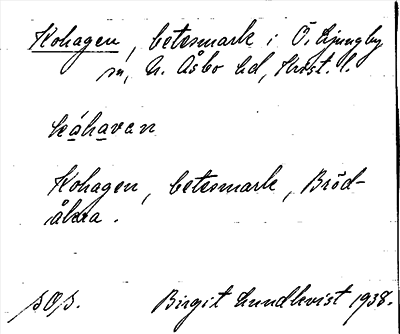 Kohagen, betesmark i Ö. Ljungby
sn, N. Åsbo hd, Krist. l.
kåhavan
Kohagen, betesmark, Bröd-
åkra.
s. O. s. Birgit Lundkvist 1938.